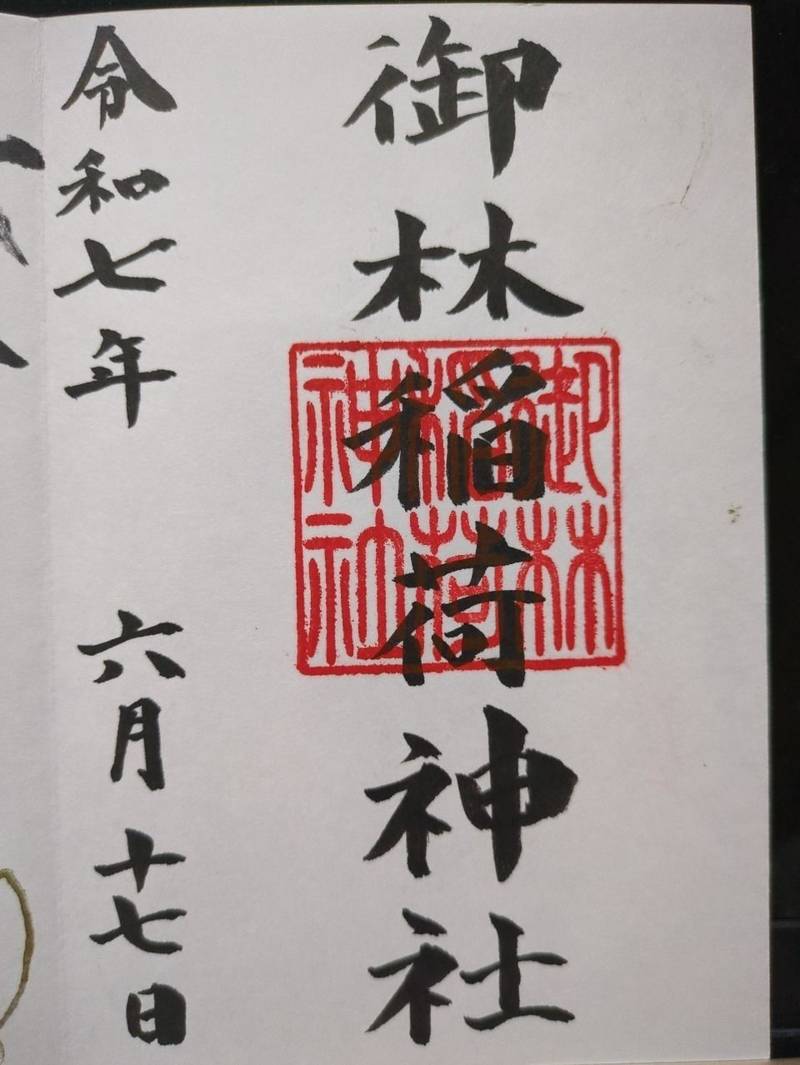 御林稲荷神社
御林
稲荷
神社
令和七年 六月十七日